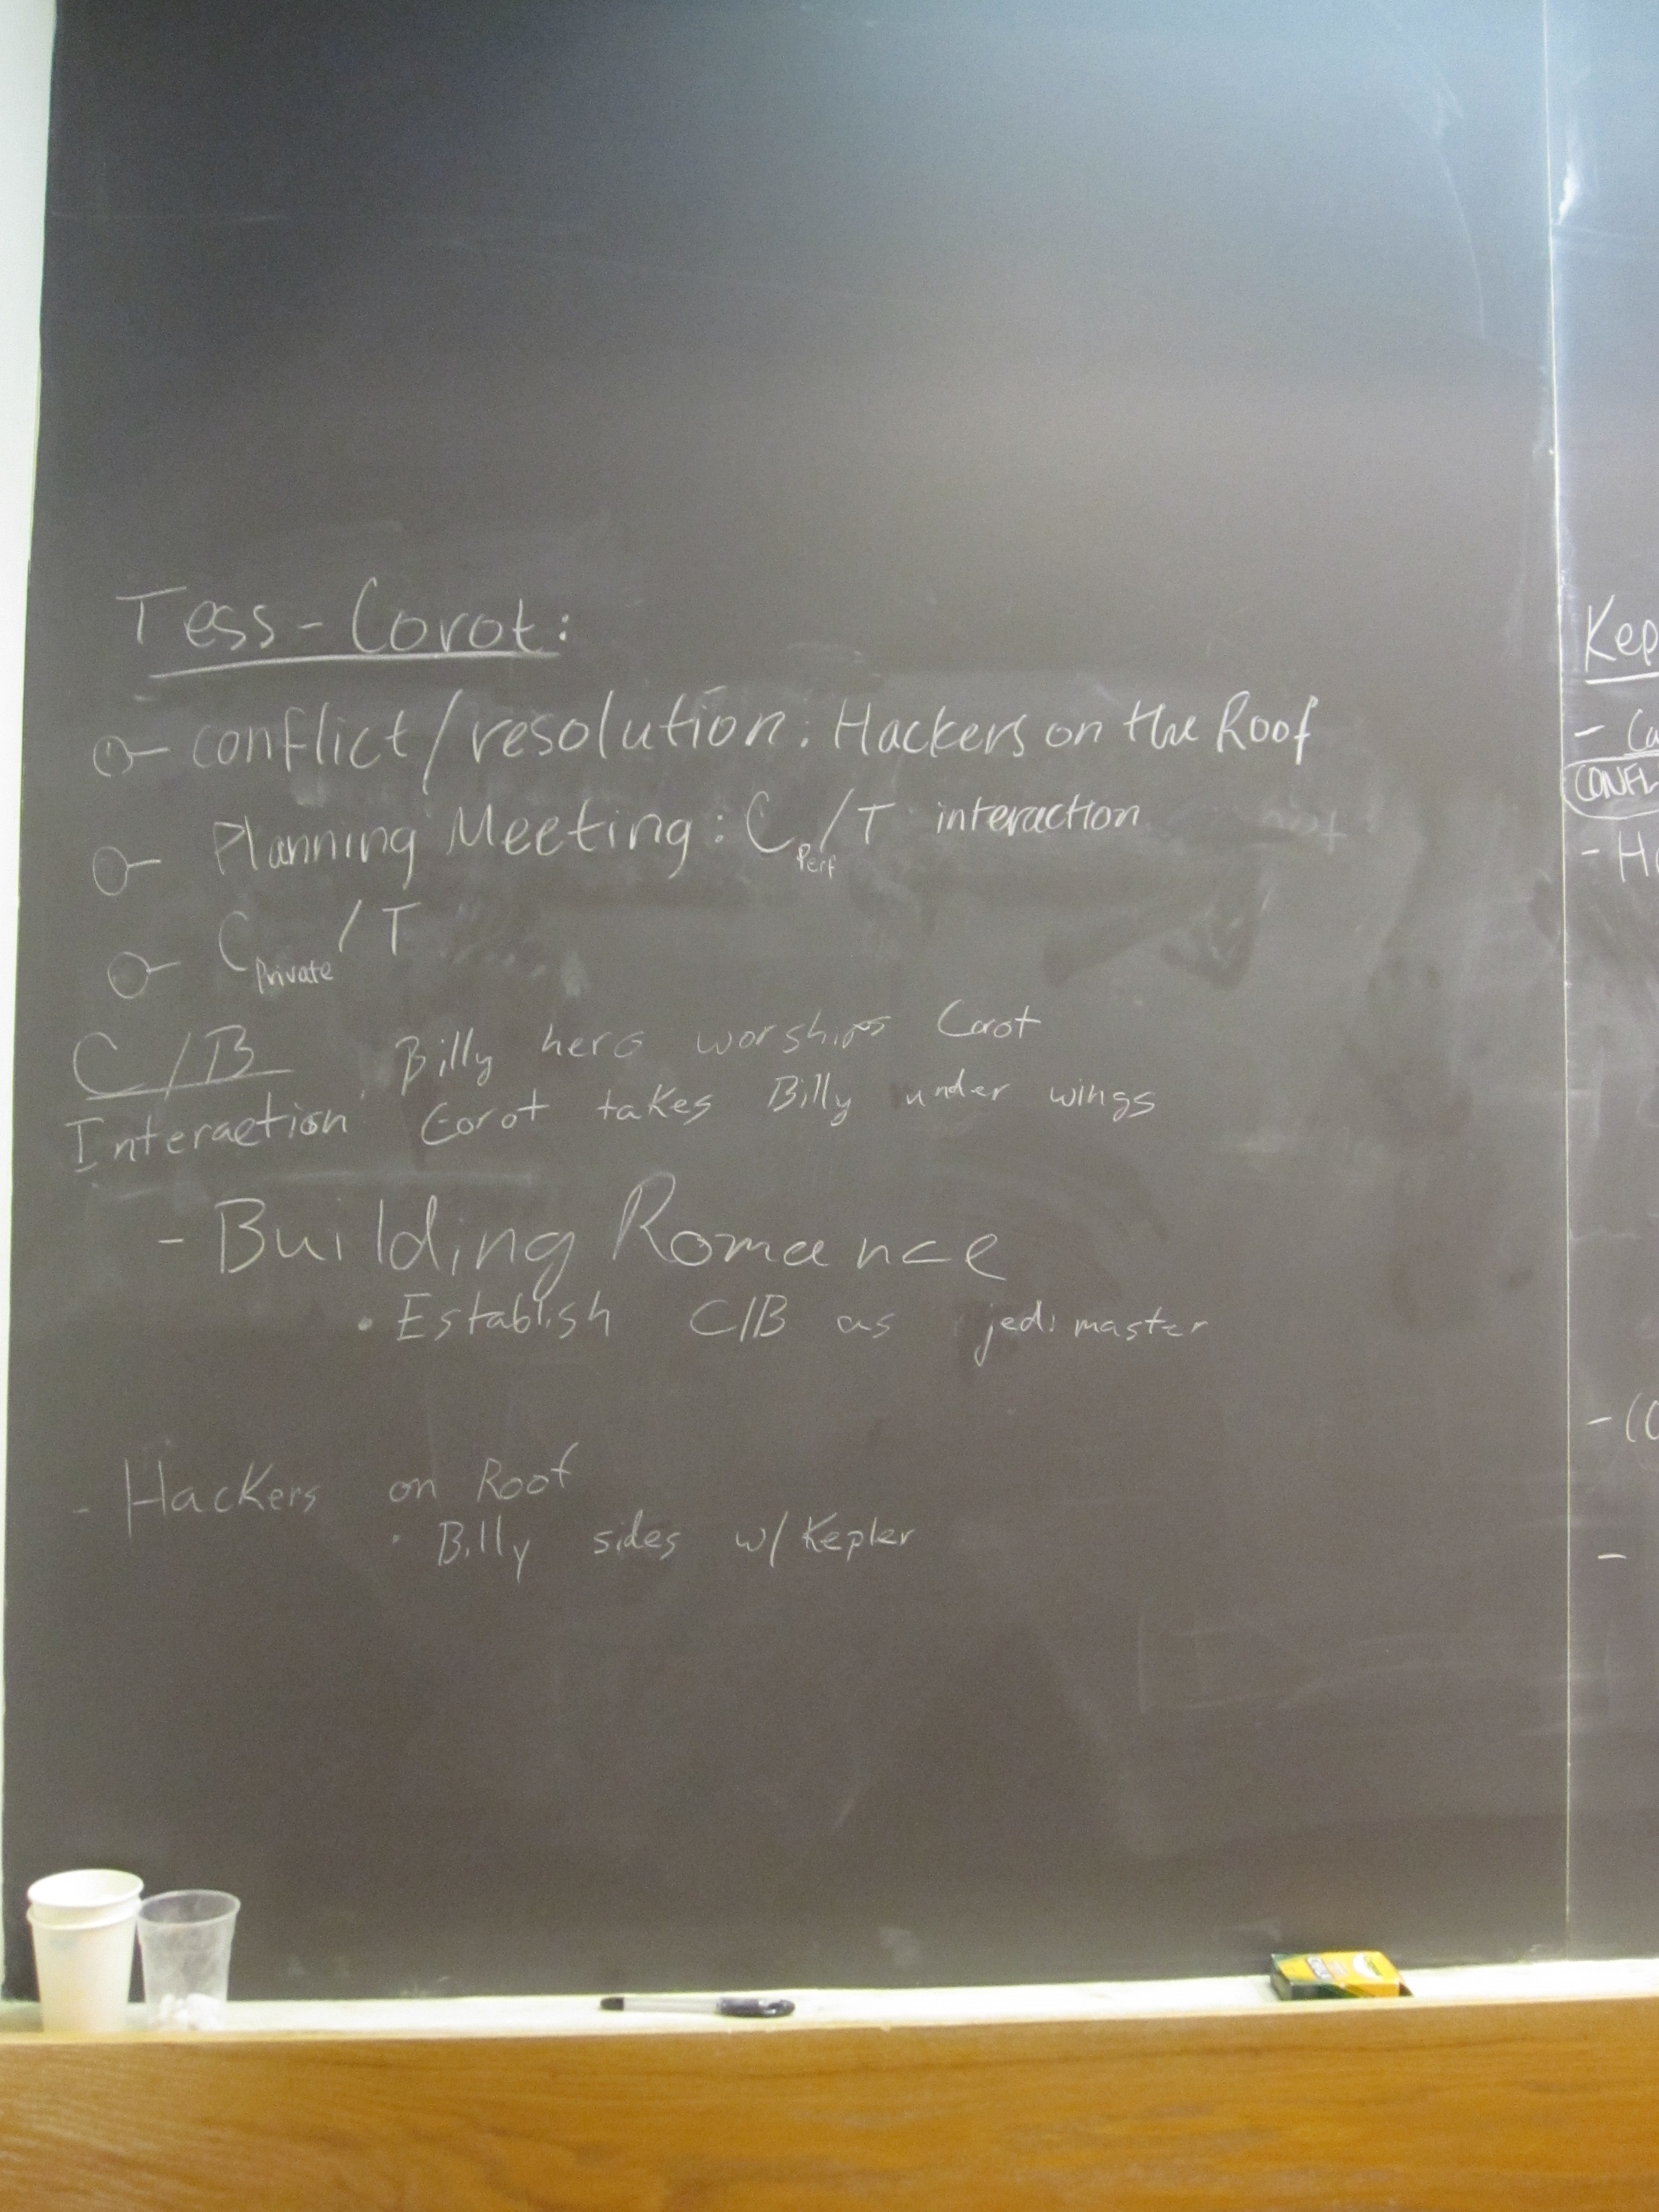 Tess - Corot:
- conflict/resolution: Hackers on the Roof
- Planning Meeting: C Perf/T interaction
- C Private/T
C/B Billy hero worships Corot
Interaction Corot takes Billy under wings
- Building Romance
• Establish C/B as jedi master
- Hackers on Roof
• Billy sides w/ Kepler
Kep
-
CONFL
- H
-
-